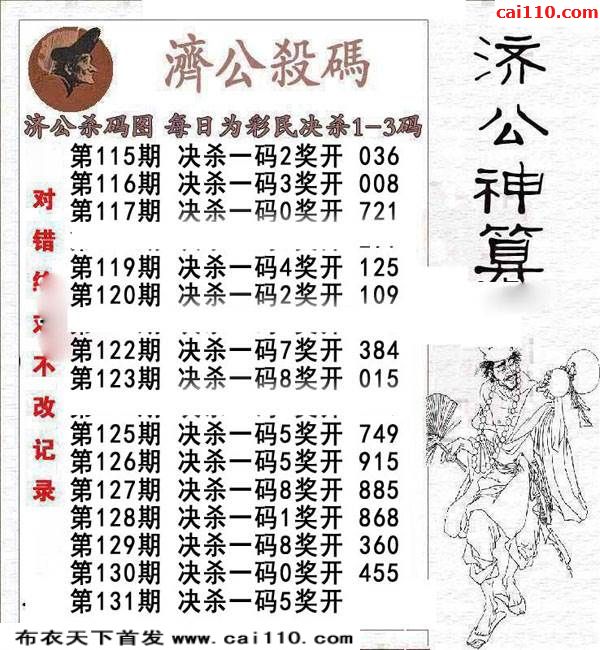 cai110.com
濟公殺碼
济公神算
济公杀码图 每日为彩民决杀1-3码
第115期 决杀一码2奖开 036
第116期 决杀一码3奖开 008
第117期 决杀一码0奖开 721
第119期 决杀一码4奖开 125
第120期 决杀一码2奖开 109
第122期 决杀一码7奖开 384
第123期 决杀一码8奖开 015
第125期 决杀一码5奖开 749
第126期 决杀一码5奖开 915
第127期 决杀一码8奖开 885
第128期 决杀一码1奖开 868
第129期 决杀一码8奖开 360
第130期 决杀一码0奖开 455
第131期 决杀一码5奖开
对错不改记录
布衣天下首发 www.cai110.com